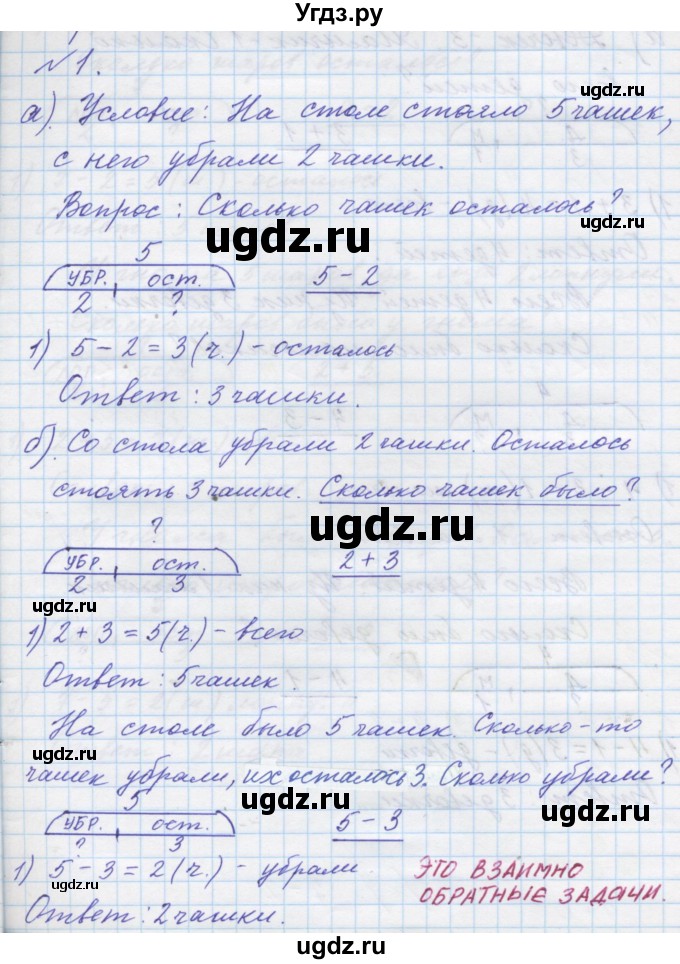 Угдз.ру
№1.
а). Условие: На столе стояло 5 чашек,
с него убрали 2 чашки.
Вопрос: Сколько чашек осталось?
ugdz.ru
5
УБР. ОСТ.
2 ?
5 - 2
ugdz.ru
ugdz.ru
1) 5 - 2 = 3 (ч.) - осталось
Ответ: 3 чашки.
б). Со стола убрали 2 чашки. Осталось
стоять 3 чашки. Сколько чашек было?
ugdz.ru
?
УБР. ОСТ.
2 3
2 + 3
ugdz.ru
ugdz.ru
1) 2 + 3 = 5 (ч.) - всего
Ответ: 5 чашек.
На столе было 5 чашек. Сколько-то
ugdz.ru
чашек убрали, их осталось 3. Сколько убрали?
5
УБР. ОСТ.
? 3
5 - 3
ugdz.ru
ugdz.ru
1) 5 - 3 = 2 (ч.) - убрали.
ЭТО ВЗАИМНО
ОБРАТНЫЕ ЗАДАЧИ.
ugdz.ru
Ответ: 2 чашки.
ugdz.ru
ugdz.ru